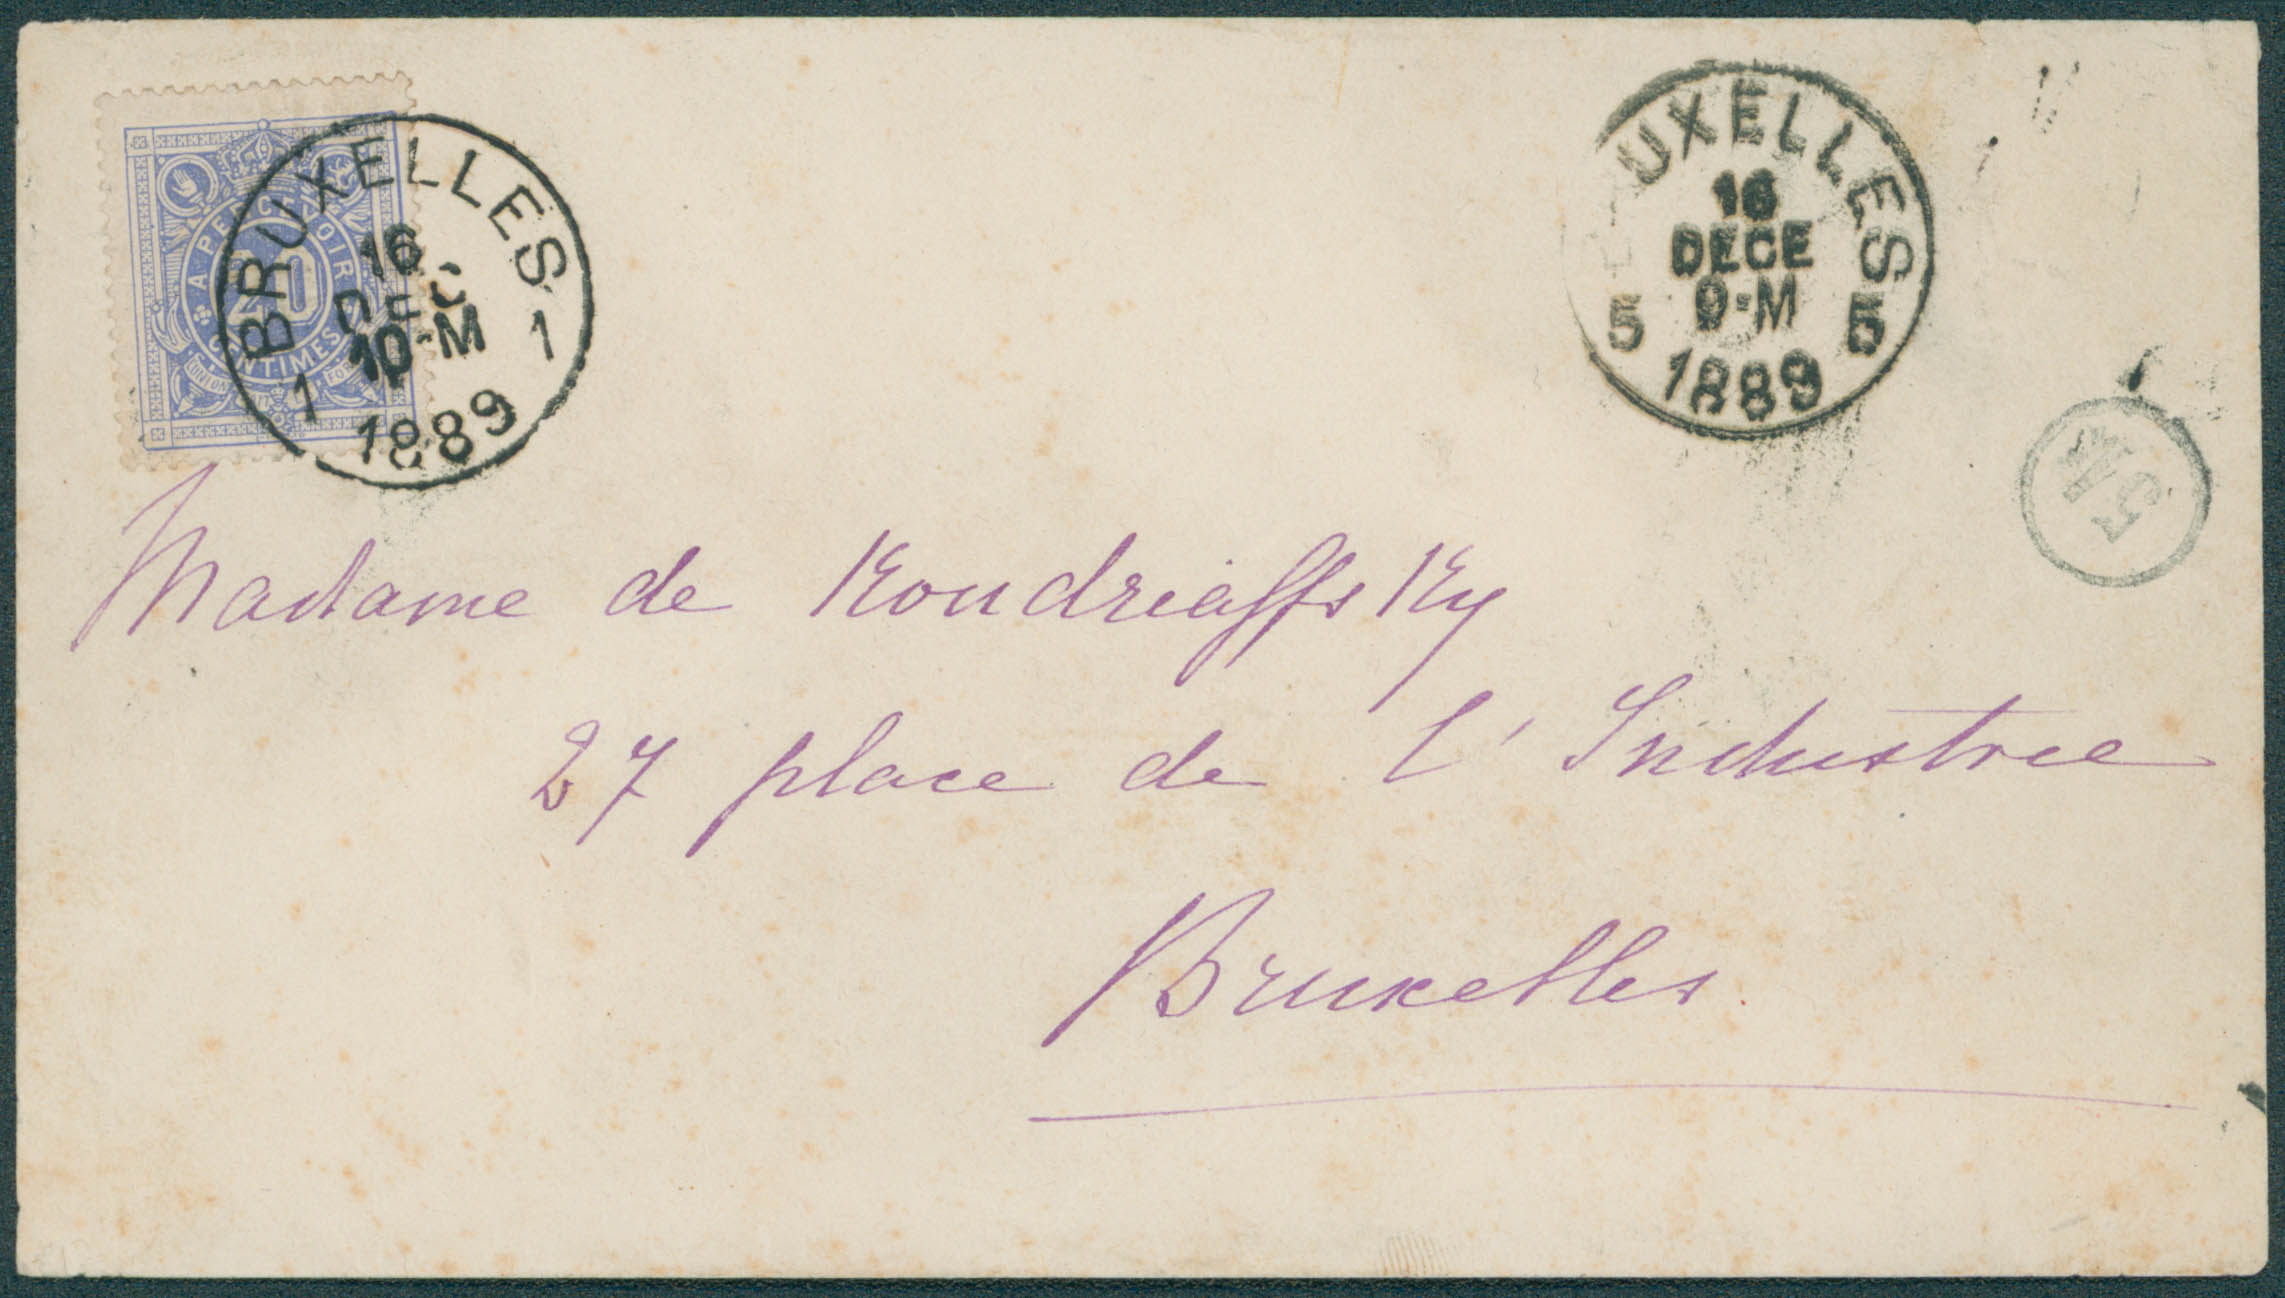 A PERCEVOIR
20
CENTIMES
BRUXELLES
16
DEC
10-M
1 1
1889
UXELLES
16
DECE
9-M
5 5
1889
Madame de Koudriaffsky
27 place de l'Industrie
Bruxelles